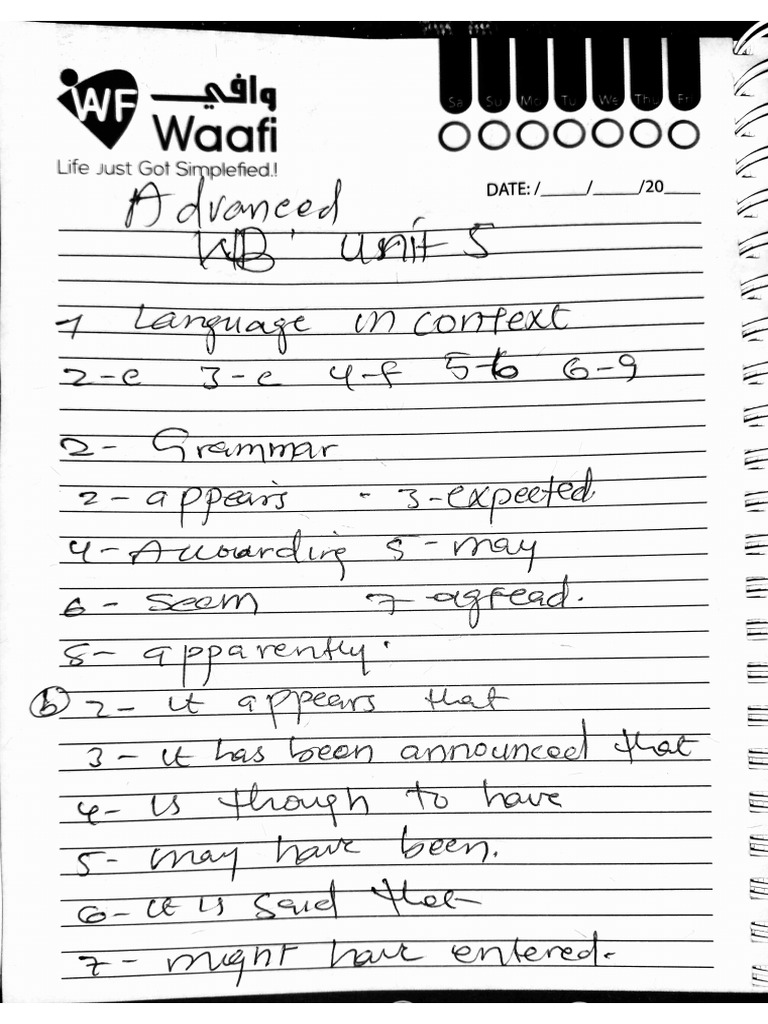 WF وافي
Waafi
Life Just Got Simplefied.!
Sa Su Mo Tu We Thu Fr
DATE: /____/____/20____
Advanced
WB unit 5
1 Language in context
2-e 3-c 4-f 5-b 6-9
2- Grammar
2- appears - 3-expected
4- Accuording 5-may
6- Seem 7 agread.
8- apparently.
(b) 2- it appears that
3- it has been announced that
4- is though to have
5- may have been.
6- it is said that
7- might have entered.